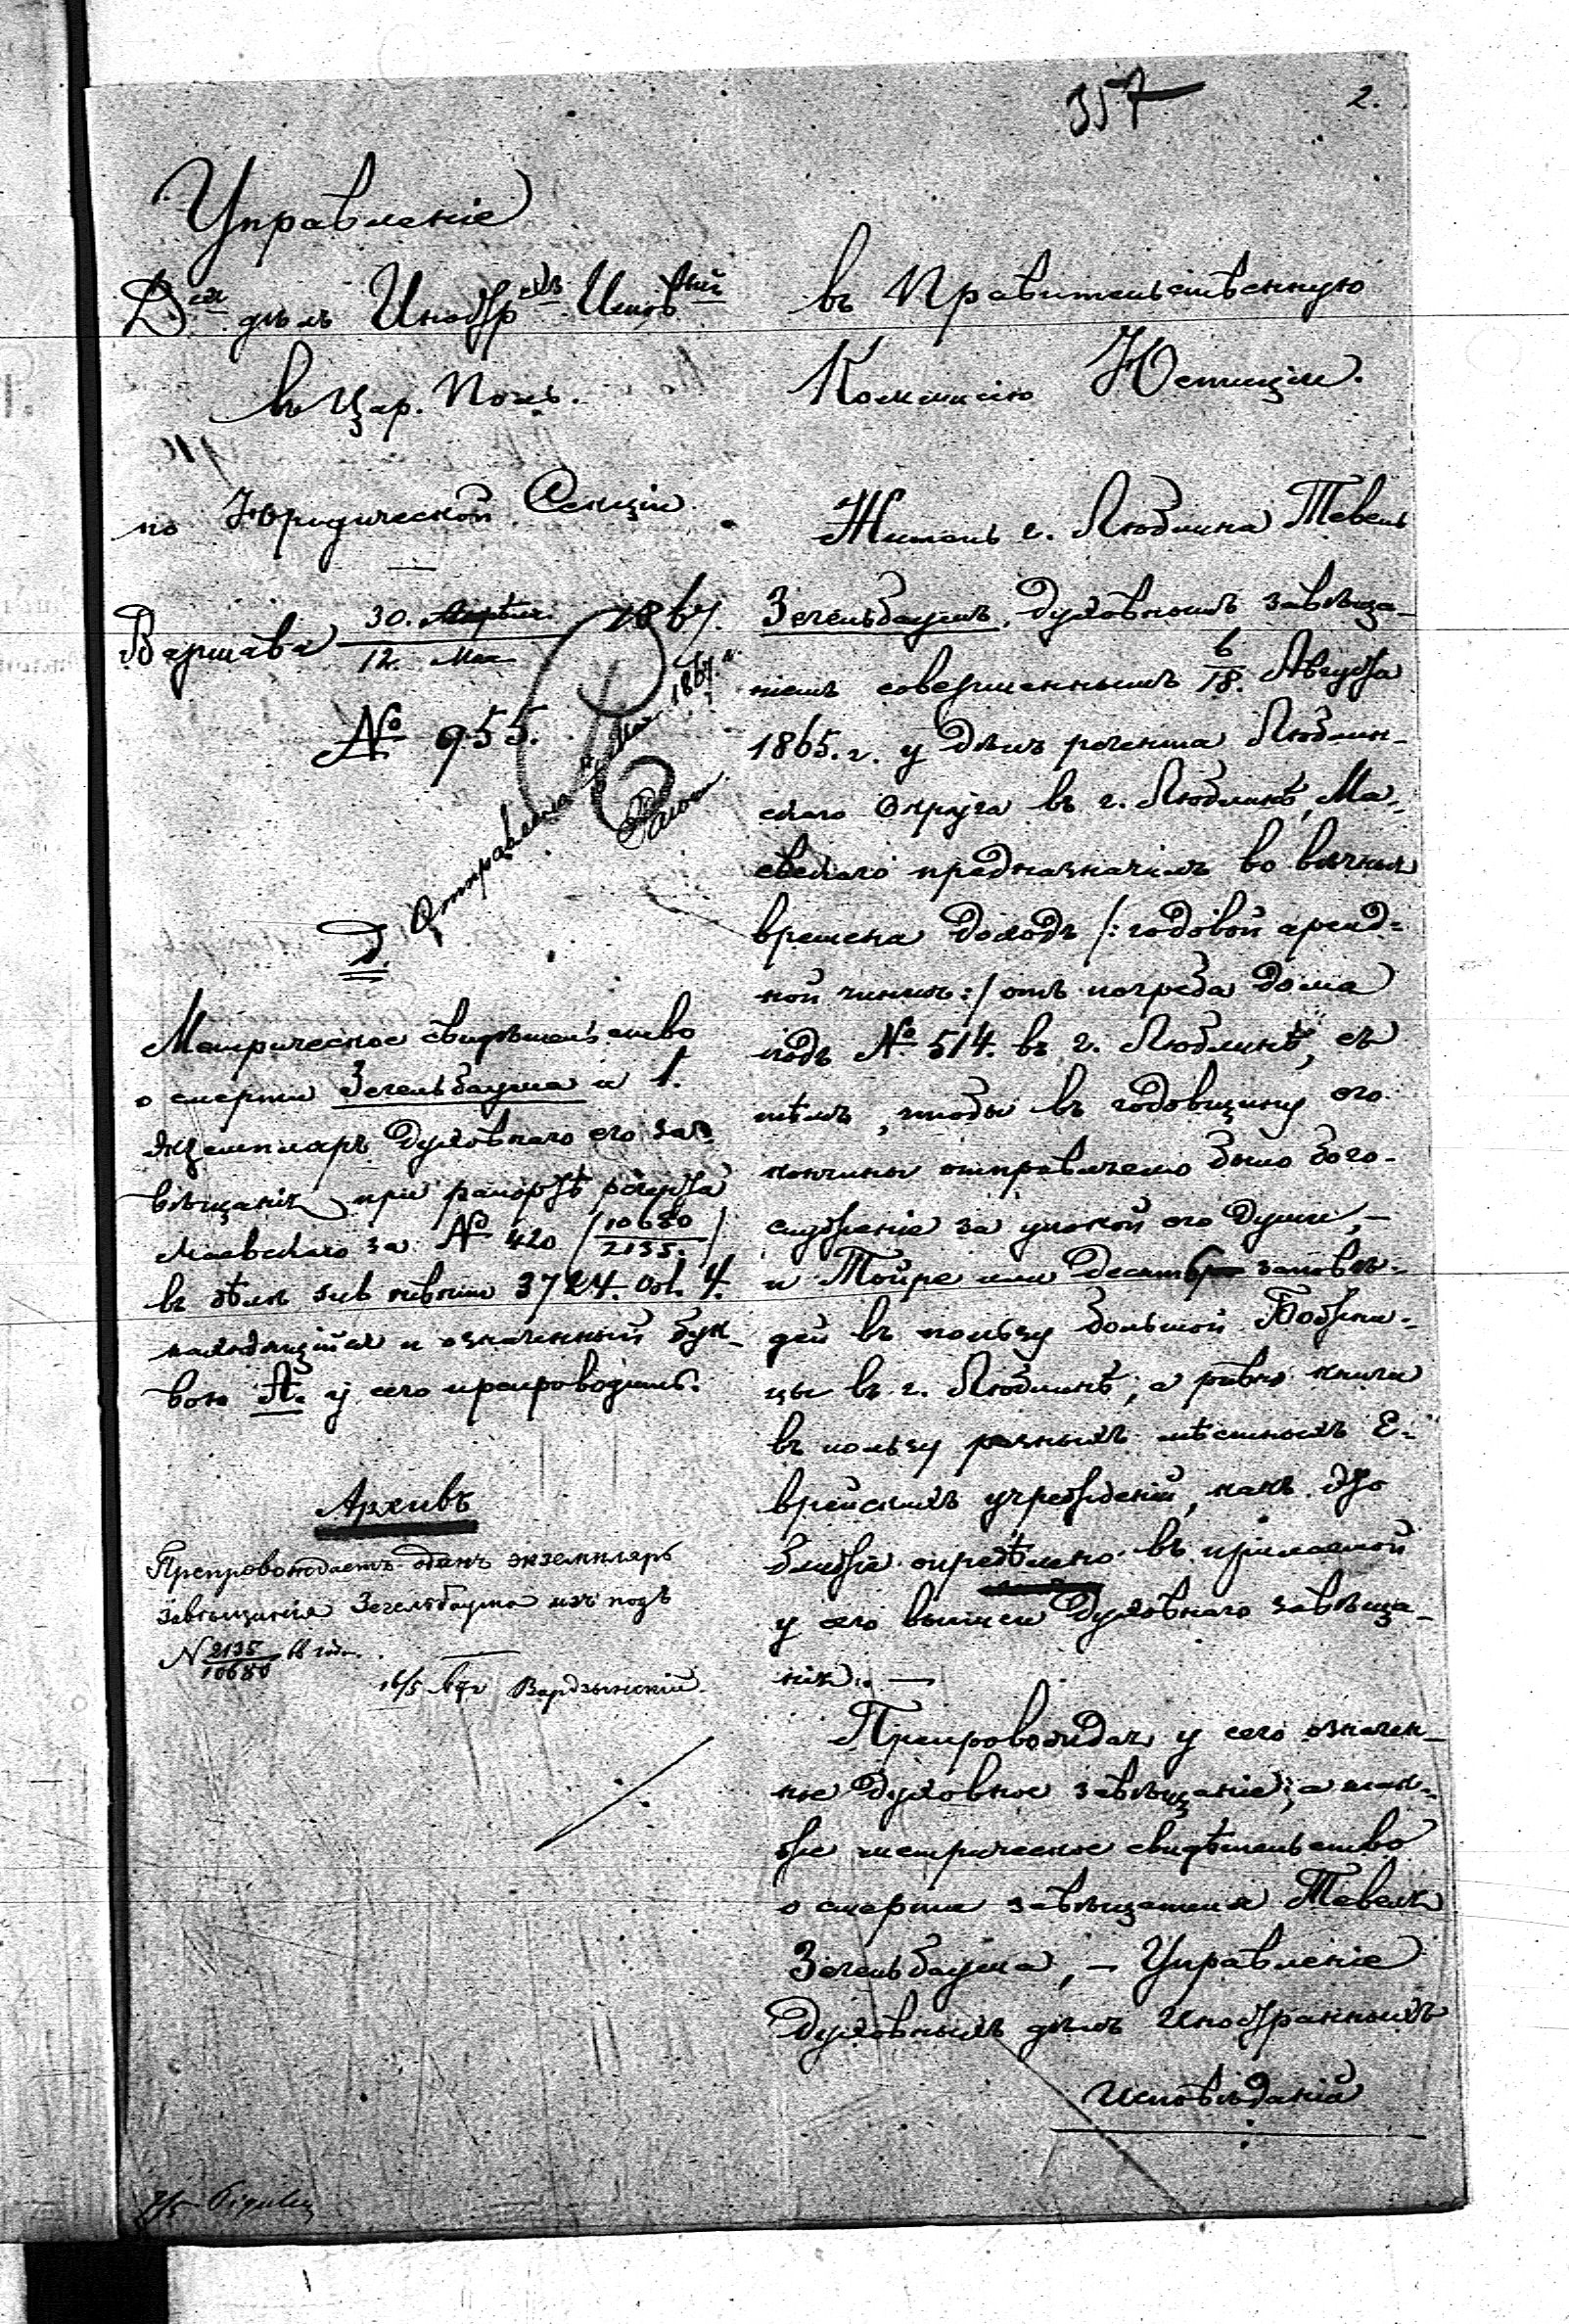 357
2.
Управленіе
Д. дѣлъ Инобр. Испов.
въ Цар. Поль.
по Юридической Секціи
Варшава 30. Апрѣля / 12. Мая 1867.
№ 955.
Отправлена Мая 1867. г.
Д.
Метрическое свидѣтельство
о смерти Зегельбаума и 1.
экземпляръ духовнаго его за-
вѣщанія при рапортѣ реента
Маевскаго за № 420 /10680/2135./
въ дѣлѣ 3724. vol. 4.
находящійся и означенный бук-
вою А. у сего препроводить.
Архивъ
Препровождаетъ одинъ экземпляръ
завѣщанія Зегельбаума изъ подъ
N 2135/10680
16/5
въ Правительственную
Коммисію Юстиціи.
Житель г. Люблина Тевель
Зегельбаумъ, духовнымъ завѣща-
ніемъ совершеннымъ 6/18. Августа
1865. г. у дѣлъ реента Люблин-
скаго Округа въ г. Люблинѣ, Ма-
евскаго предназначилъ во вѣчныя
времена доходъ /: годовой аренд-
ной чиншъ :/ отъ погреба дома
подъ № 514. въ г. Люблинѣ, съ
тѣмъ, чтобы въ годовщину его
кончины отправляемо было бого-
служеніе за упокой его души, —
и Тойре или десять заповѣ-
дей въ пользу большой Божни-
цы въ г. Люблинѣ, а равно книги
въ пользу разныхъ мѣстныхъ Е-
врейскихъ учрежденій, какъ это
ближе опредѣлено въ прилагаемой
у сего выписи духовнаго завѣща-
нія. —
Препровождая у сего означен-
ное духовное завѣщаніе, а так-
же метрическое свидѣтельство
о смерти завѣщателя Тевеля
Зегельбаума, — Управленіе
Духовныхъ дѣлъ Иностранныхъ
Исповѣданій